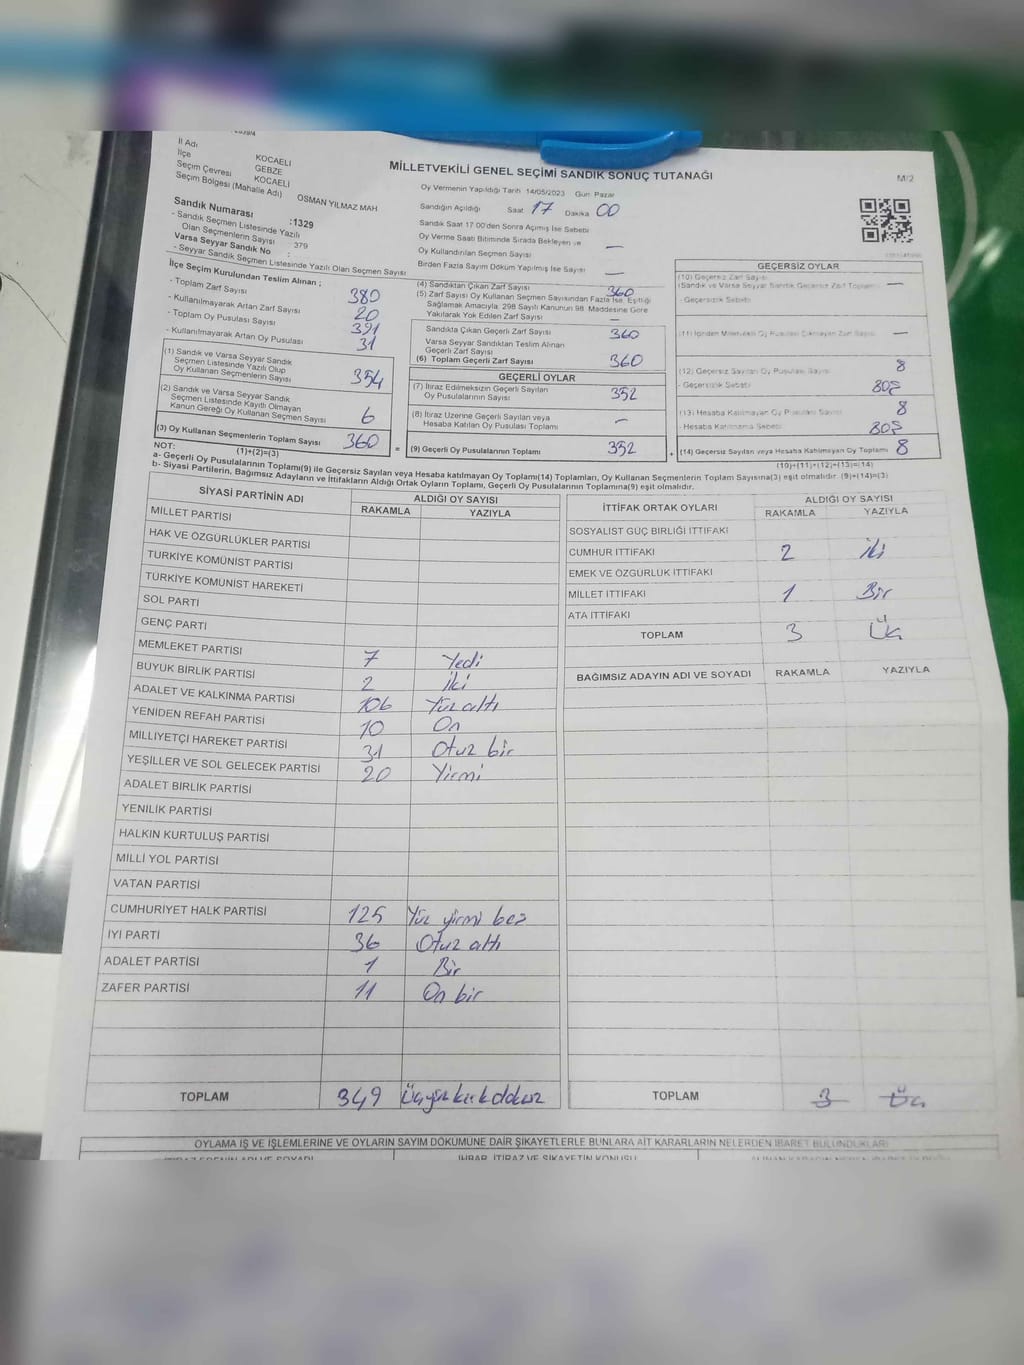 İl Adı KOCAELİ
İlçe GEBZE
Seçim Çevresi KOCAELİ
Seçim Bölgesi (Mahalle Adı) OSMAN YILMAZ MAH.
MİLLETVEKİLİ GENEL SEÇİMİ SANDIK SONUÇ TUTANAĞI
M/2
Oy Vermenin Yapıldığı Tarih 14/05/2023 Gün: Pazar
Sandığın Açıldığı Saat 17 Dakika 00
Sandık Saat 17:00'den Sonra Açılmış İse Sebebi
Oy Verme Saati Bitiminde Sırada Bekleyen ve
Oy Kullandırılan Seçmen Sayısı —
Birden Fazla Sayım Döküm Yapılmış İse Sayısı —
Sandık Numarası :1329
- Sandık Seçmen Listesinde Yazılı
Olan Seçmenlerin Sayısı 379
Varsa Seyyar Sandık No :
- Seyyar Sandık Seçmen Listesinde Yazılı Olan Seçmen Sayısı
İlçe Seçim Kurulundan Teslim Alınan ;
- Toplam Zarf Sayısı 380
- Kullanılmayarak Artan Zarf Sayısı 20
- Toplam Oy Pusulası Sayısı 391
- Kullanılmayarak Artan Oy Pusulası 31
(1) Sandık ve Varsa Seyyar Sandık
Seçmen Listesinde Yazılı Olup
Oy Kullanan Seçmenlerin Sayısı 354
(2) Sandık ve Varsa Seyyar Sandık
Seçmen Listesinde Kayıtlı Olmayan
Kanun Gereği Oy Kullanan Seçmen Sayısı 6
(3) Oy Kullanan Seçmenlerin Toplam Sayısı 360
(1)+(2)=(3)
(4) Sandıktan Çıkan Zarf Sayısı 360
(5) Zarf Sayısı Oy Kullanan Seçmen Sayısından Fazla İse, Eşitliği
Sağlamak Amacıyla; 298 Sayılı Kanunun 98. Maddesine Göre
Yakılarak Yok Edilen Zarf Sayısı —
Sandıkta Çıkan Geçerli Zarf Sayısı 360
Varsa Seyyar Sandıktan Teslim Alınan
Geçerli Zarf Sayısı
(6) Toplam Geçerli Zarf Sayısı 360
GEÇERLİ OYLAR
(7) İtiraz Edilmeksizin Geçerli Sayılan
Oy Pusulalarının Sayısı 352
(8) İtiraz Üzerine Geçerli Sayılan veya
Hesaba Katılan Oy Pusulası Toplamı —
= (9) Geçerli Oy Pusulalarının Toplamı 352
GEÇERSİZ OYLAR
(10) Geçersiz Zarf Sayısı
(Sandık ve Varsa Seyyar Sandık Geçersiz Zarf Toplamı) —
- Geçersizlik Sebebi
(11) İçinden Milletvekili Oy Pusulası Çıkmayan Zarf Sayısı —
(12) Geçersiz Sayılan Oy Pusulası Sayısı 8
- Geçersizlik Sebebi BOŞ
(13) Hesaba Katılmayan Oy Pusulası Sayısı 8
- Hesaba Katılmama Sebebi BOŞ
+ (14) Geçersiz Sayılan veya Hesaba Katılmayan Oy Toplamı 8
(10)+(11)+(12)+(13)=(14)
NOT:
a- Geçerli Oy Pusulalarının Toplamı(9) ile Geçersiz Sayılan veya Hesaba katılmayan Oy Toplamı(14) Toplamları, Oy Kullanan Seçmenlerin Toplam Sayısına(3) eşit olmalıdır. (9)+(14)=(3)
b- Siyasi Partilerin, Bağımsız Adayların ve İttifakların Aldığı Ortak Oyların Toplamı, Geçerli Oy Pusulalarının Toplamına(9) eşit olmalıdır.
SİYASİ PARTİNİN ADI ALDIĞI OY SAYISI
RAKAMLA YAZIYLA
MİLLET PARTİSİ
HAK VE ÖZGÜRLÜKLER PARTİSİ
TÜRKİYE KOMÜNİST PARTİSİ
TÜRKİYE KOMÜNİST HAREKETİ
SOL PARTİ
GENÇ PARTİ
MEMLEKET PARTİSİ 7 Yedi
BÜYÜK BİRLİK PARTİSİ 2 İki
ADALET VE KALKINMA PARTİSİ 106 Yüz altı
YENİDEN REFAH PARTİSİ 10 On
MİLLİYETÇİ HAREKET PARTİSİ 31 Otuz bir
YEŞİLLER VE SOL GELECEK PARTİSİ 20 Yirmi
ADALET BİRLİK PARTİSİ
YENİLİK PARTİSİ
HALKIN KURTULUŞ PARTİSİ
MİLLİ YOL PARTİSİ
VATAN PARTİSİ
CUMHURİYET HALK PARTİSİ 125 Yüz yirmi beş
İYİ PARTİ 36 Otuz altı
ADALET PARTİSİ 1 Bir
ZAFER PARTİSİ 11 On bir
TOPLAM 349 Üçyüz kırk dokuz
İTTİFAK ORTAK OYLARI ALDIĞI OY SAYISI
RAKAMLA YAZIYLA
SOSYALİST GÜÇ BİRLİĞİ İTTİFAKI
CUMHUR İTTİFAKI 2 İki
EMEK VE ÖZGÜRLÜK İTTİFAKI
MİLLET İTTİFAKI 1 Bir
ATA İTTİFAKI
TOPLAM 3 Üç
BAĞIMSIZ ADAYIN ADI VE SOYADI RAKAMLA YAZIYLA
TOPLAM 3 Üç
OYLAMA İŞ VE İŞLEMLERİNE VE OYLARIN SAYIM DÖKÜMÜNE DAİR ŞİKAYETLERLE BUNLARA AİT KARARLARIN NELERDEN İBARET BULUNDUKLARI
İHBAR, İTİRAZ VE ŞİKAYETİN KONUSU